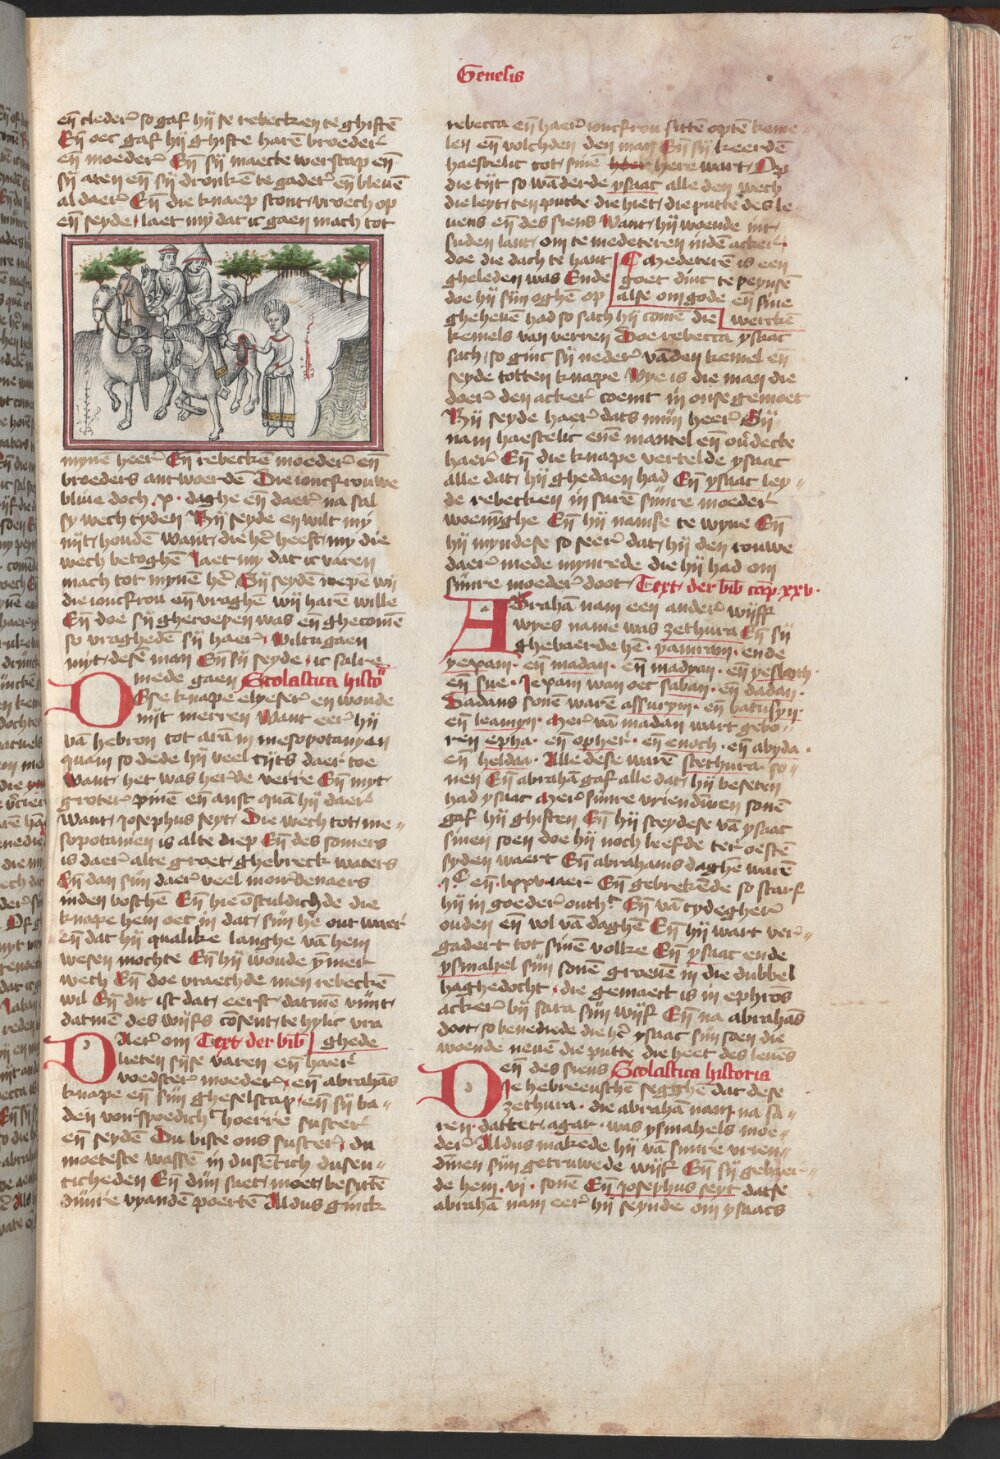 27
Genesis
eñ cleder̄ so gaf hij se rebecken te ghiftē
Eñ oec gaf hij ghifte harē broeder̄
eñ moeder̄ Eñ sij maecte werscap eñ
sij aten eñ sij dronkē te gader̄ eñ bleuē
al daer̄ Eñ die knaep stont vroech op
eñ seyde laet my dat ic gaen mach tot
mynē heer̄ Eñ rebeckē moeder̄ eñ
broeders antwoerdē Die ioncfrouwe
bliue doch .x. daghe eñ daer̄ na sal
sy wech tyden Hij seyde en wilt my
nijt houdē want die hē heeft my die
wech betoghē laet my dat ic varen
mach tot mynē hē Sij seydē roepe wij
die ioncfrou eñ vraghē wij harē wille
Eñ doe sij gheroepen was eñ ghecomē
so vraghedē sij haer̄ wiltu gaen
mit desē man Eñ sij seyde ic salre
mede gaen Scolastica histo
Dese knape elyeser̄ en woude
nijt merren Want eer̄ hij
vā hebron tot arā in mesopotanyen
quam so dede hij veel tijts daer toe
Want het was herde verre Eñ myt
groter̄ pinē eñ anst quā hij daer̄
Want josephus seyt Die wech tot me
sopotamien is alte diep Eñ des somers
is daer̄ alte groet ghebreck waters
Eñ dan sijn daer̄ veel mordenaers
inden boschē Eñ hie ōsculdichde die
knape hem oec in dat sijn hē out waer̄
eñ dat hij qualike langhe vā hem
wesen mochte Eñ hij woude ȳmer
wech Eñ doe vraechde men rebeckē
wil Eñ dit ist dat eerst datmē vijnt
datmē des wijfs cōsent te hylic vra
Daer̄ om Text der bib ghede
lieten sijse varen eñ haer̄
voedster moeder̄ eñ abrahās
knape eñ sijn gheselscap eñ sij ba
den voirspoedich hoerre suster̄
eñ seydē Du biste ons suster̄ du
moeteste wassē in dusētich dusen
ticheden Eñ dijn saet moet besittē
dijnre vyandē poertē Aldus ginck
rebecca eñ haer̄ ioncfrou sittē op tē keme
len eñ volchden den man Eñ sij keerdē
haestelic tot sinē here wart Op
die tijt so wāderde ysaac alle den wech
die leyt ten putte die hiet die putte des le
uens eñ des siens Want hij woende int
suden lant om te mediteren inden acker
doe die dach te hant Mediterē is een
gheleden was Ende goet dinc te peynsē
doe hij sijn oghē op alse om gode eñ sine
gheheuē had so sach hij comē die wercke
kemels van verren Doe rebecca ysaac
sach so ginc sij neder̄ vādē kemel en
seyde totten knape Wye is die man die
doer̄ den acker̄ coemt in onse gemoet
Hij seyde haer̄ dats mijn heer̄ Sij
nam haestelic enē mantel eñ ōdecte
haer̄ Eñ die knape vertelde ysaac
alle dat hij ghedaen had Eñ ysaac ley
de rebecken in sarē sijnre moeder̄
woeninghe Eñ hij namse te wyue Eñ
hij mijndese so seer̄ dat hij den rouwe
daer̄ mede mynrede die hij had om
sijnre moeder̄ doot Text der bib cap̄ xxv.
Abrahā nam een ander̄ wijff
wyes name was zethura Eñ sij
ghebaerde hē yamron ende
yexan. eñ madan. eñ madyan. eñ yesboth.
eñ sue. Jexan wan oec saban. eñ dadan.
Dadans sonē warē assurym. eñ latusym.
eñ leamyn. Mer̄ vā madan wart gebo
ren epha. eñ opher̄. eñ enoch. eñ abyda.
eñ heldaa. Alle dese warē sethura so
nen Eñ abrahā gaf alle dat hij beseten
had ysaac Mer̄ sijnre vriendīnen sonē
gaf hij ghiften Eñ hij sceydese vā ysaac
sinen soen doe hij noch leefde ter̄ oestē
syden waert Eñ abrahams daghē warē
.jc. eñ .lxxv. iaer̄ Eñ gebrekēde so starf
hij in goeder̄ outh̄ Eñ vā tydegher̄
ouden eñ vol vā daghē Eñ hij wart ver
gadert tot sinē volke Eñ ysaac ende
ysmahel sijn sonē groeuē in die dubbel
haghedocht die gemaect is in ephrōs
acker̄ bij sara sijn wijf Eñ na abrahās
doot so benedide die hē ysaac sijn soen die
woende neuē die putte die heet des leuēs
eñ des siens Scolastica historia
Die hebreeusthē segghē dat dese
zethura. die abrahā nam na sa
ren dattet agar was ysmahels moe
der̄ Aldus makede hij vā sinre vrien
dinen sijn getruwede wijf Eñ sij gebaer
de hem .vi. sonē Eñ josephus seyt datse
abrahā nam eer̄ hij seynde om ysaacs